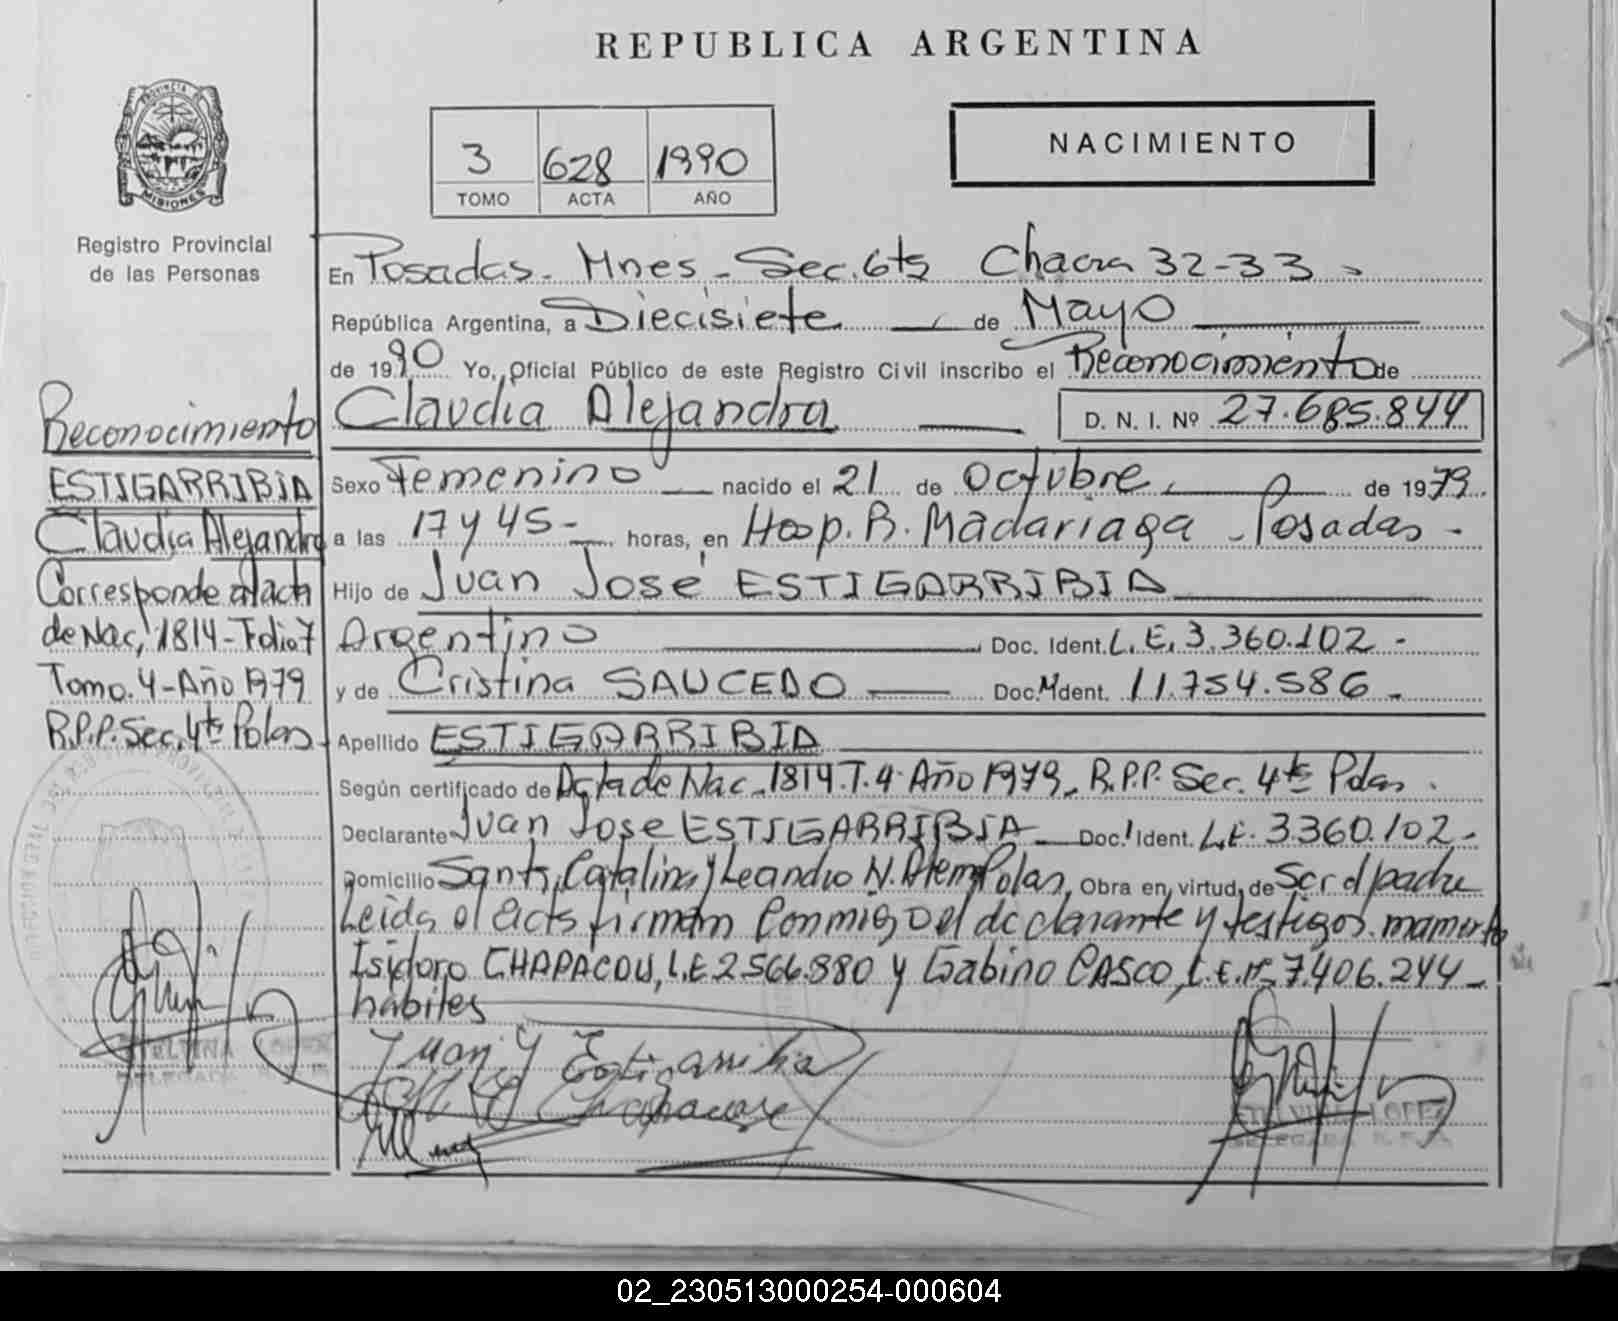 REPUBLICA ARGENTINA
PROVINCIA DE
MISIONES
Registro Provincial
de las Personas
3 628 1990
TOMO ACTA AÑO
NACIMIENTO
En Posadas - Mnes - Sec. 6ta Chacra 32-33 -
República Argentina, a Diecisiete de Mayo
de 1990 Yo, Oficial Público de este Registro Civil inscribo el Reconocimiento de
Claudia Alejandra D. N. I. Nº 27.685.844
Sexo Femenino nacido el 21 de Octubre de 1979
a las 17 y 45 - horas, en Hosp. R. Madariaga - Posadas -
Hijo de Juan José ESTIGARRIBIA
Argentino Doc. Ident. L.E. 3.360.102 -
y de Cristina SAUCEDO Doc. Ident. 11.754.586 -
Apellido ESTIGARRIBIA
Según certificado de Acta de Nac. 1814. T. 4. Año 1979. R.P.P. Sec. 4ta Pdas.
Declarante Juan José ESTIGARRIBIA Doc. Ident. L.E. 3360.102 -
Domicilio Santa Catalina y Leandro N. Alem Pdas, Obra en virtud de Ser el padre
Leida el acta firman conmigo el declarante y testigos mamerto
Isidoro CHAPACOU, L.E 2.566.880 y Gabino CASCO, L.E. Nº 7.406.244 -
habiles
Juan J Estigarribia
Reconocimiento
ESTIGARRIBIA
Claudia Alejandra
Corresponde al acta
de Nac. 1814 - Folio 7
Tomo. 4 - Año 1979
R.P.P. Sec. 4ta Pdas
ETELVINA LOPEZ
DELEGADA R.P.P.
ETELVINA LOPEZ
DELEGADA R.P.P.
02_230513000254-000604